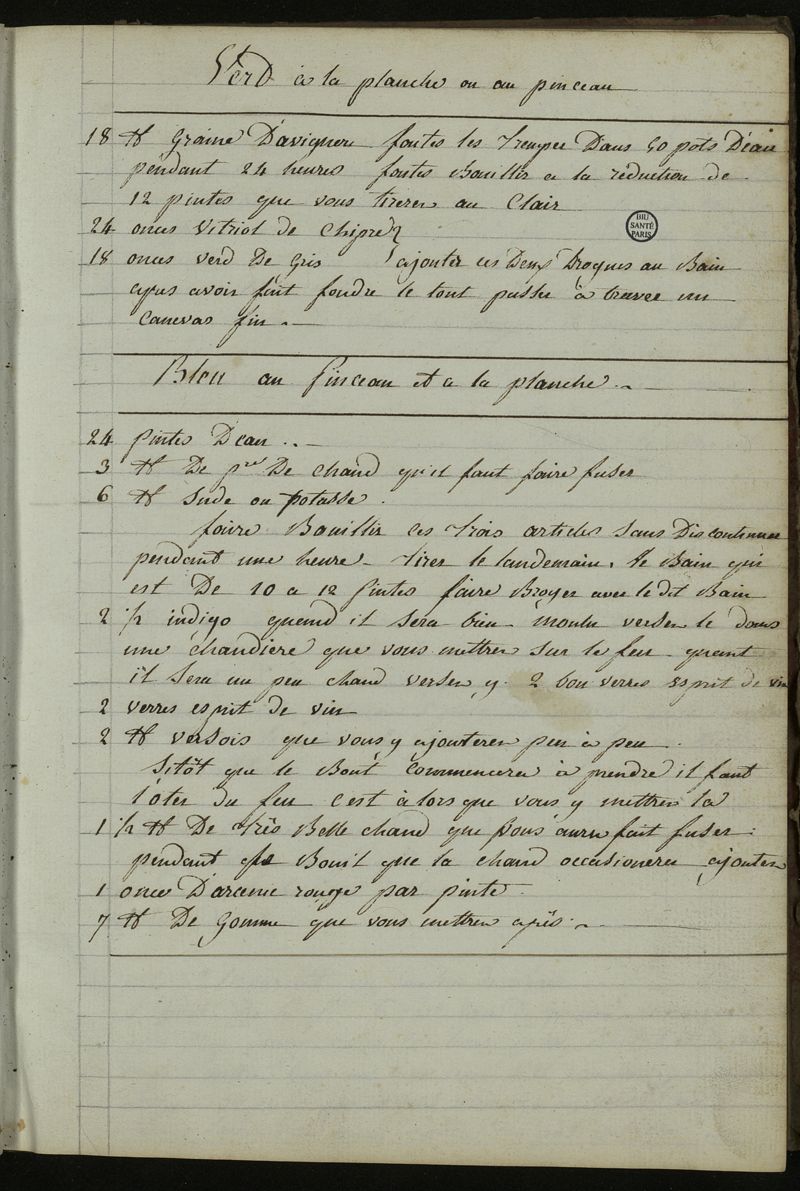 Verd à la planche ou au pinceau
18 ℔ Graine D'avignon faites les tremper Dans 50 pots D'eau
pendant 24 heures faites Bouillir a la réduction de
12 pintes que vous tirerez au Clair
24 onces Vitriol de Chipre
18 onces verd De Gris ajouter ces Deux Drogues au Bain
apres avoir fait fondre le tout passer à travers un
Canevas fin.
BIU SANTÉ PARIS
Bleu au pinceau et a la planche
24 pintes D'eau
3 ℔ De pre De Chaud qu'il faut faire fuser
6 ℔ Sude ou potasse.
faire Bouillir ces trois articles Sans Discontinuer
pendant une heure - tirer le landemain. le Bain qui
est De 10 a 12 pintes faire Broyer avec le dit Bain
2 ½ indigo quand il sera bien moulu verser le dans
une chaudiere que vous mettrez sur le feu quant
il sera un peu chaud verser y 2 bon verres esprit de vin
2 verres esprit de vin
2 ℔ que vous y ajouterez peu à peu.
Sitôt que le commencera à prendre il faut
l'ôter du feu c'est à lors que vous y mettrez la
1 ½ ℔ De très Belle chaud que vous aurez fait fuser
pendant le Bouil que la chaud occasionera ajouter
1 once D'arcenic rouge par pinte
7 ℔ De Gomme que vous mettrez après.